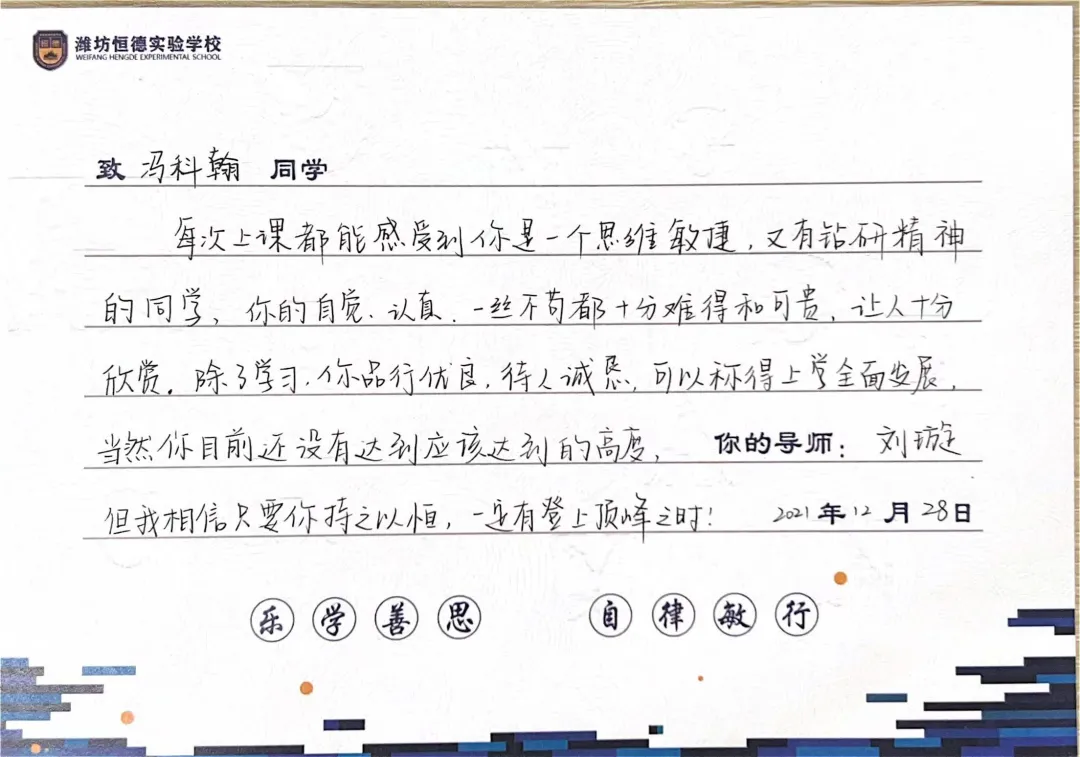 潍坊恒德实验学校
WEIFANG HENGDE EXPERIMENTAL SCHOOL
致 冯科翰 同学
每次上课都能感受到你是一个思维敏捷，又有钻研精神
的同学，你的自觉、认真、一丝不苟都十分难得和可贵，让人十分
欣赏。除了学习，你品行优良，待人诚恳，可以称得上学全面发展，
当然你目前还没有达到应该达到的高度， 你的导师：刘璇
但我相信只要你持之以恒，一定有登上顶峰之时！ 2021年12月28日
乐学善思 自律敏行